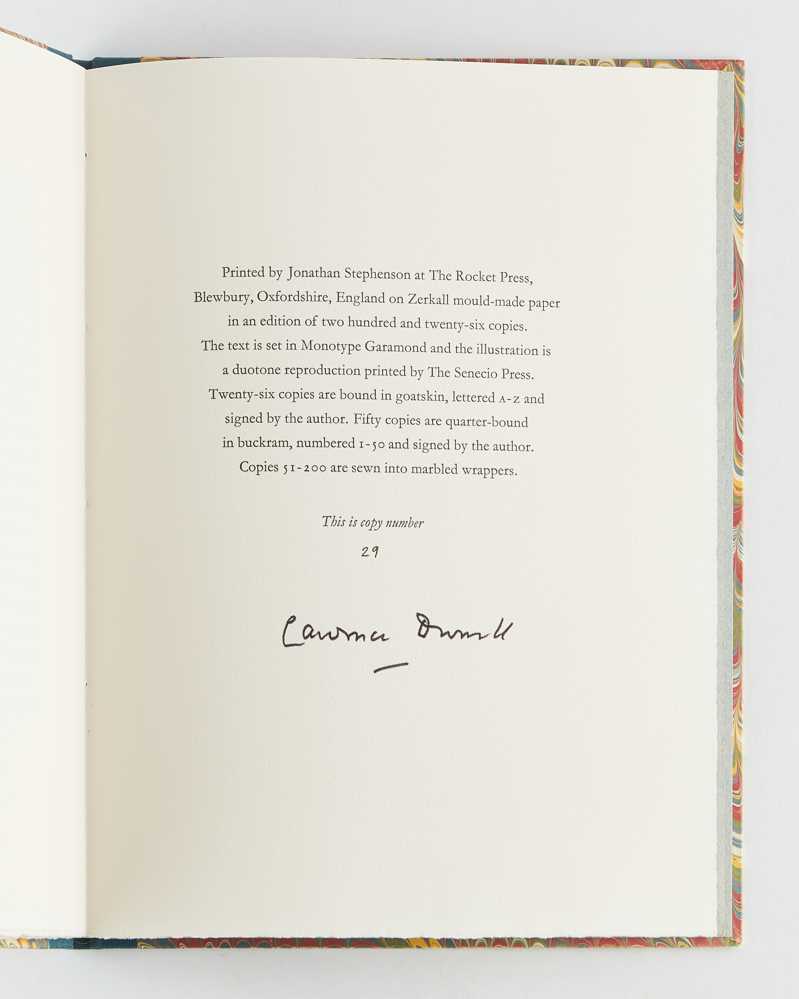 Printed by Jonathan Stephenson at The Rocket Press,
Blewbury, Oxfordshire, England on Zerkall mould-made paper
in an edition of two hundred and twenty-six copies.
The text is set in Monotype Garamond and the illustration is
a duotone reproduction printed by The Senecio Press.
Twenty-six copies are bound in goatskin, lettered A-Z and
signed by the author. Fifty copies are quarter-bound
in buckram, numbered 1-50 and signed by the author.
Copies 51-200 are sewn into marbled wrappers.
This is copy number
29
Lawrence Durrell